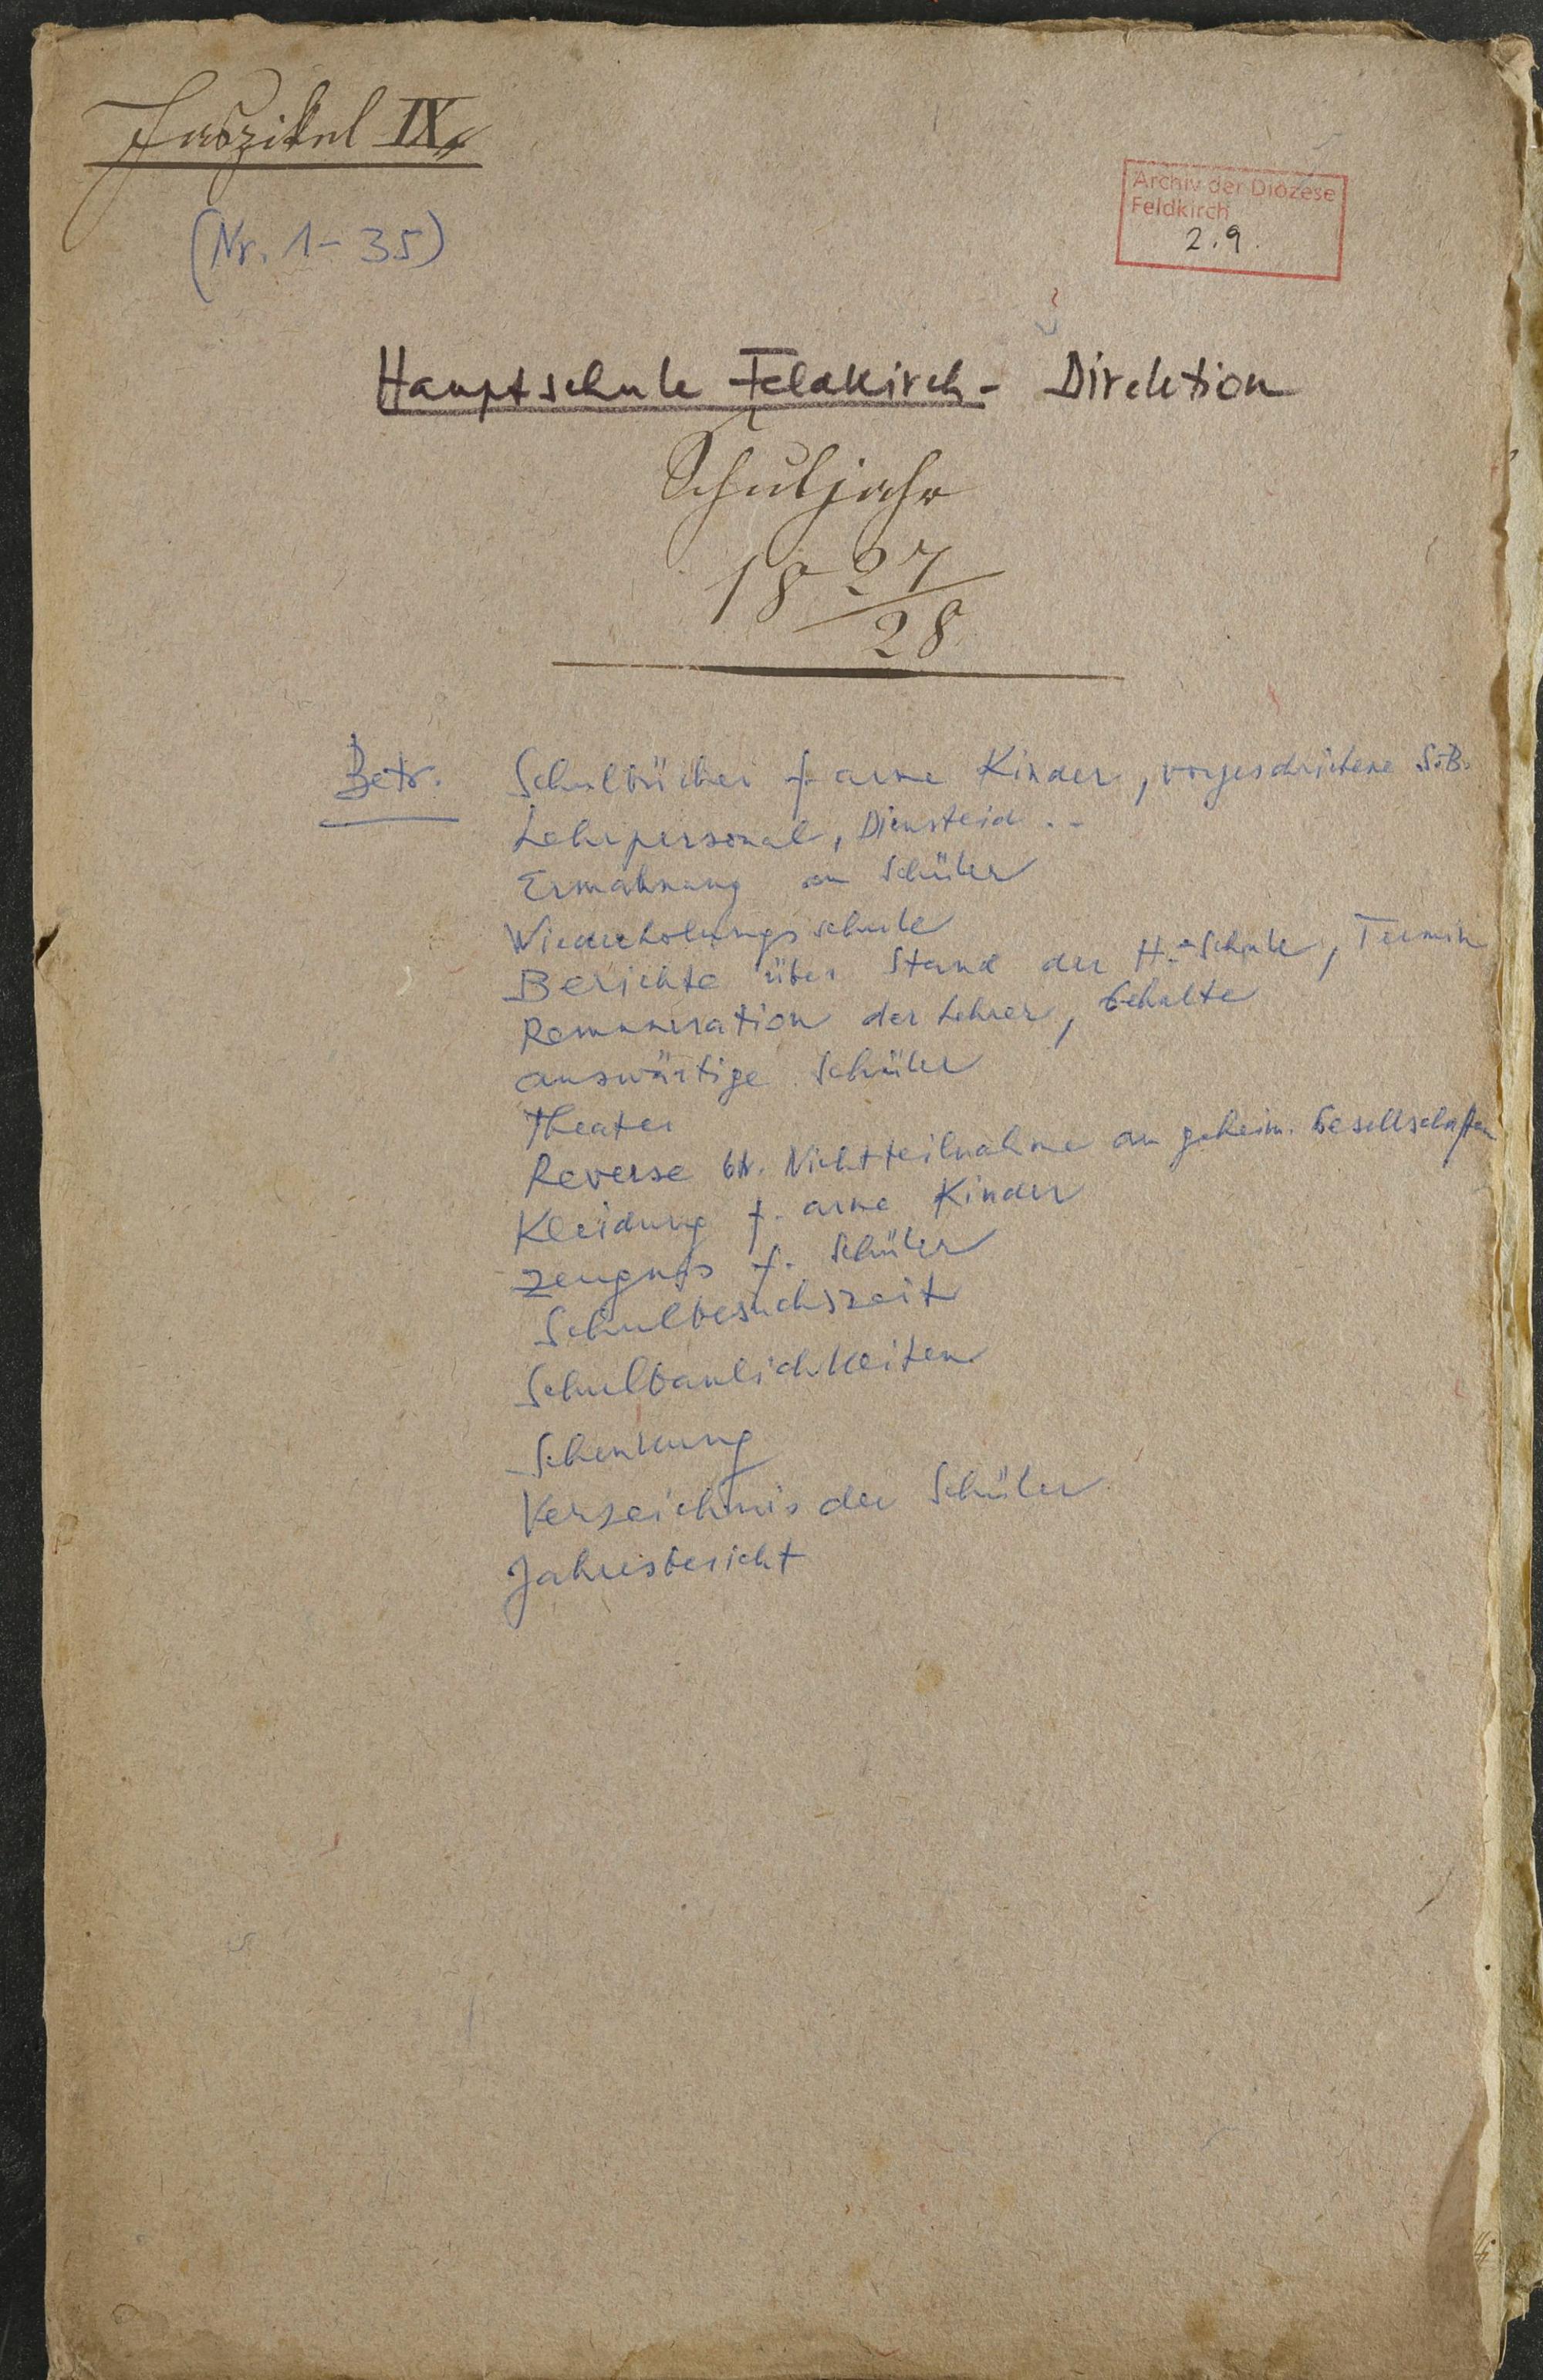 Faszikel IX.
(Nr. 1-35)
Archiv der Diözese
Feldkirch
2.9.
Hauptschule Feldkirch - Direktion
Schuljahr
18 27/28
Betr. Schulbücher f. arme Kinder, vorgeschriebene S.B.
Lehrpersonal, Diensteid ..
Ermahnung an Schüler
Wiederholungsschule
Berichte über Stand der H.-Schule, Termin
Remuneration der Lehrer, Gehalte
auswärtige Schüler
Theater
Reverse btr. Nichtteilnahme an geheim. Gesellschaften
Kleidung f. arme Kinder
Zeugnis f. Schüler
Schulbesuchszeit
Schulbaulichkeiten
Schenkung
Verzeichnis der Schüler
Jahresbericht